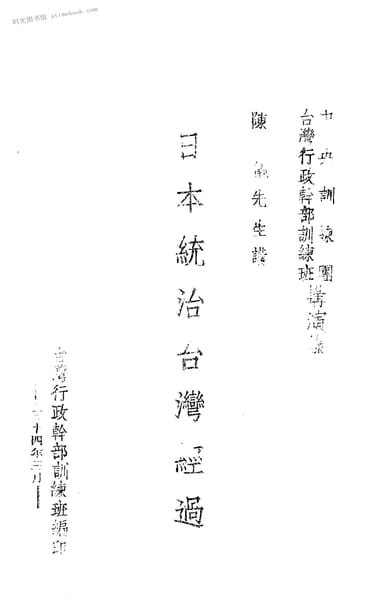 时光图书馆 stimebook.com
中央訓練團
台灣行政幹部訓練班講演錄
陳 先生講
日本統治台灣經過
台灣行政幹部訓練班編印
三十四年三月